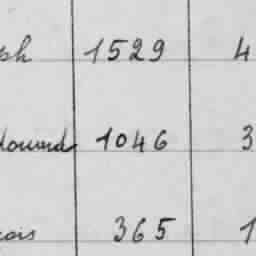 ph 1529 4
douard 1046 3
cois 365 1